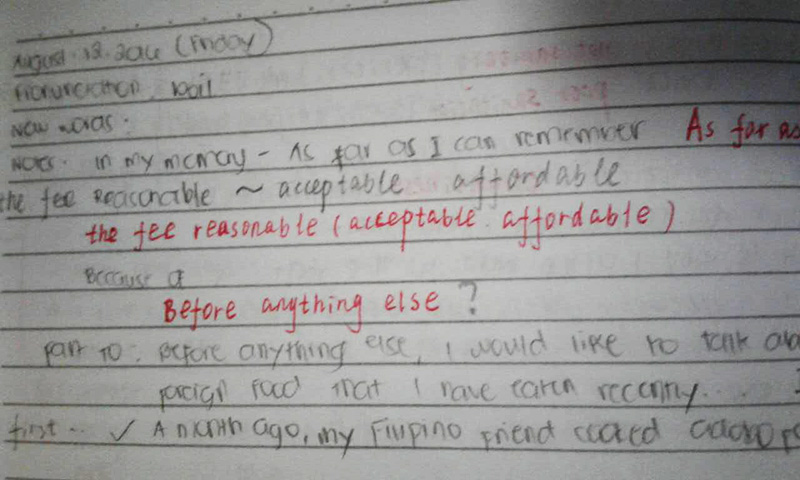 August. 12. 2016 (Friday)
Pronunciation. boil
New words:
Notes. in my memory - As far as I can remember As far as
the fee Reasonable ~ acceptable affordable
the fee reasonable (acceptable. affordable)
Because of
Before anything else ?
part TO: Before anything else, I would like to talk
foreign food that I have eaten recently...
first.. ✓ A month ago, my Filipino friend cooked adobo